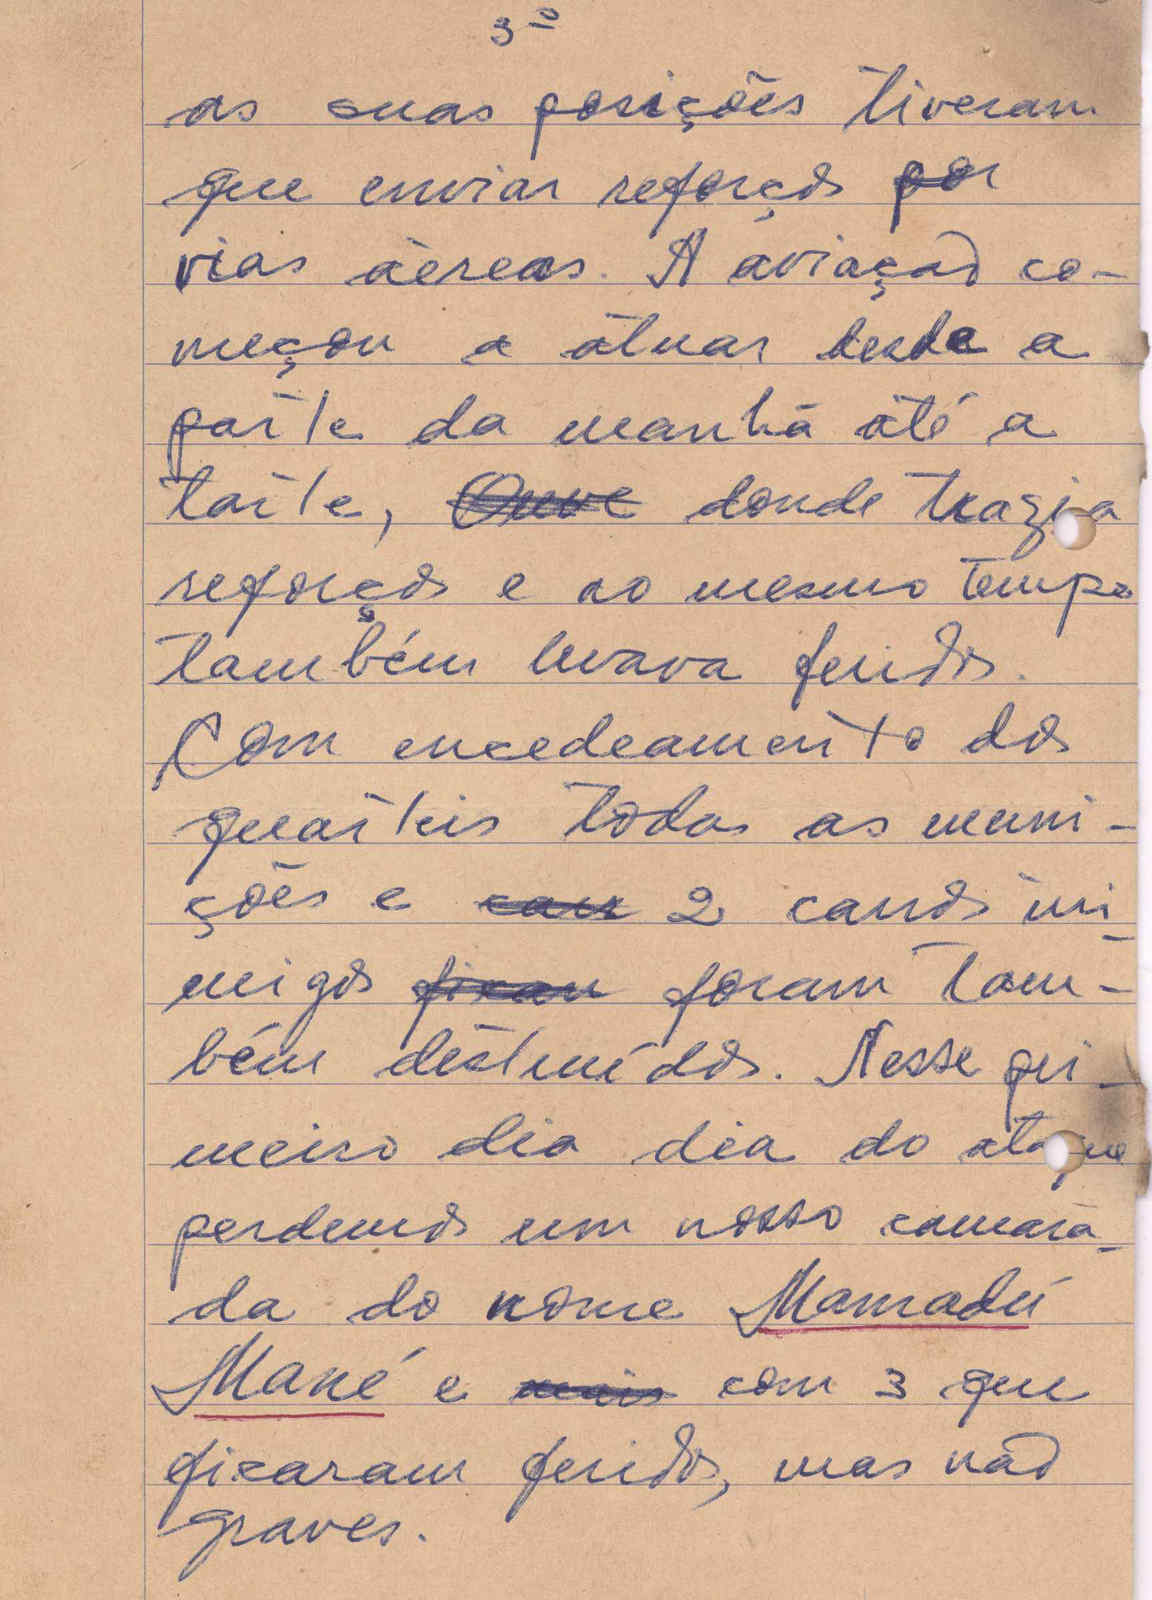 3º
as suas posições tiveram
que enviar reforços por
vias aéreas. A aviação co-
meçou a atuar desde a
parte da manhã até a
tarte, Ouve donde trazia
reforços e ao mesmo tempo
também levava feridos.
Com encedeamento dos
quarteis todas as muni-
ções e 2 canos ini
migos ficau foram tam-
bém destruídos. Nesse pri-
meiro dia dia do ataque
perdemos um nosso camara-
da do nome Mamadú
Mané e mais com 3 que
ficaram feridos, mas não
graves.